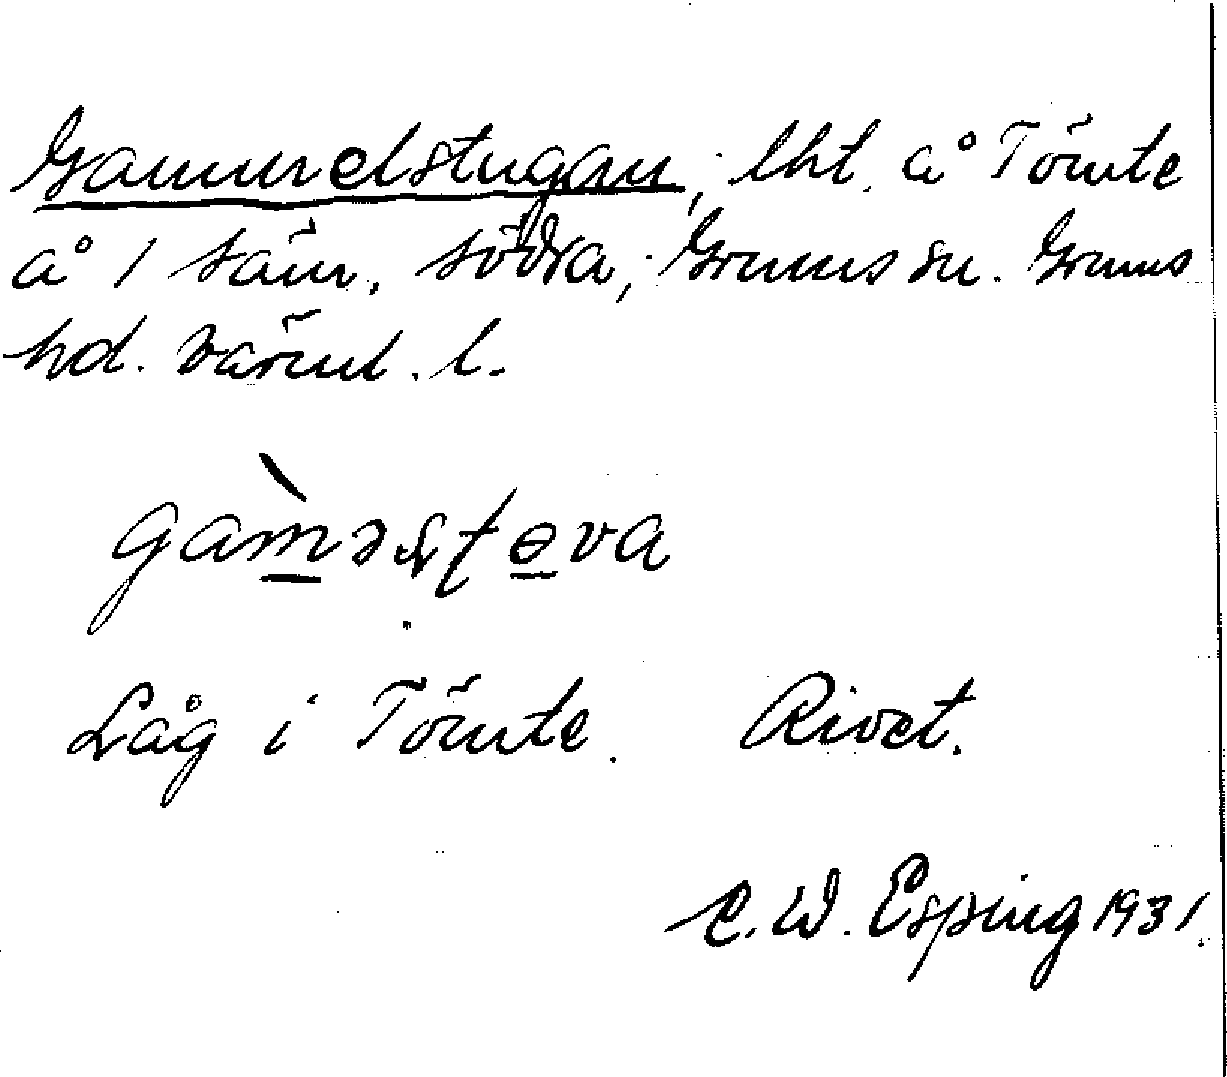 Gammelstugan, lht. å Tömte
å 1 säm. södra, Grums sn. Grums
hd. Värml. l.
gam̀əsʈɵva
Låg i Tömte. Rivet.
C. W. Esping 1931.